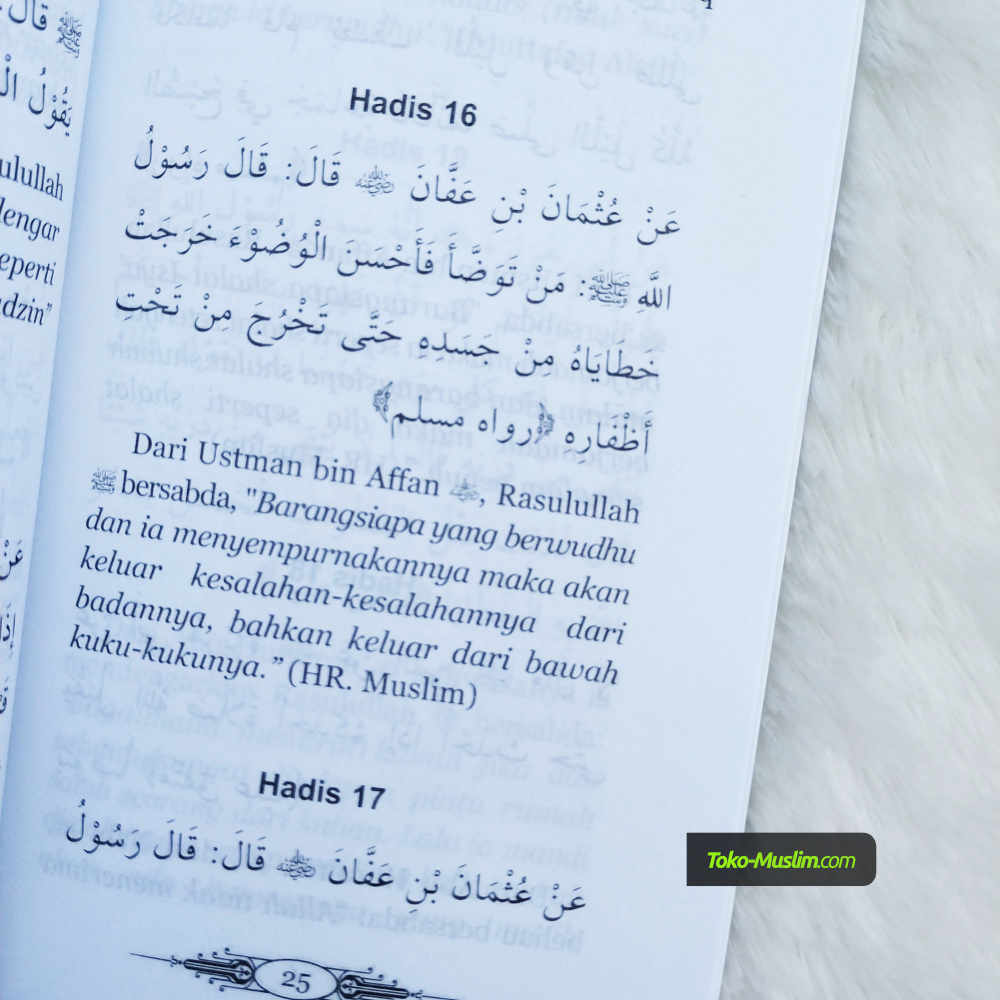 Hadis 16
عَنْ عُثْمَانَ بْنِ عَفَّانَ ﵁ قَالَ: قَالَ رَسُوْلُ
اللَّهِ ﷺ: مَنْ تَوَضَّأَ فَأَحْسَنَ الْوُضُوْءَ خَرَجَتْ
خَطَايَاهُ مِنْ جَسَدِهِ حَتَّى تَخْرُجَ مِنْ تَحْتِ
أَظْفَارِهِ ﴿رواه مسلم﴾
Dari Ustman bin Affan ﵁, Rasulullah
ﷺ bersabda, "Barangsiapa yang berwudhu
dan ia menyempurnakannya maka akan
keluar kesalahan-kesalahannya dari
badannya, bahkan keluar dari bawah
kuku-kukunya.” (HR. Muslim)
Hadis 17
عَنْ عُثْمَانَ بْنِ عَفَّانَ ﵁ قَالَ: قَالَ رَسُوْلُ
25
ﷺ قَالَ
يَقُوْلُ
ulullah
lengar
eperti
dzin”
عَنْ
إِذَا
Toko-Muslim.com